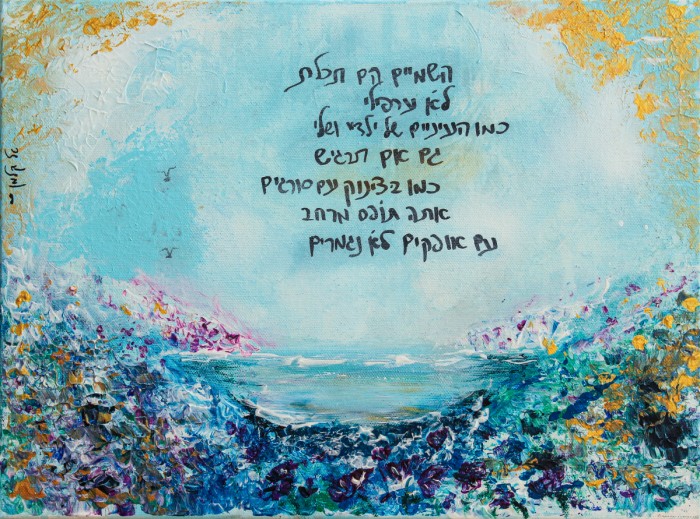 השמיים הם תכלת
לא ערפילי
כמו העיניים של ילדי ושלי
גם אם תרגיש
כמו בצינוק עם סורגים
אתה תופס מרחב
עם אופקים לא נגמרים